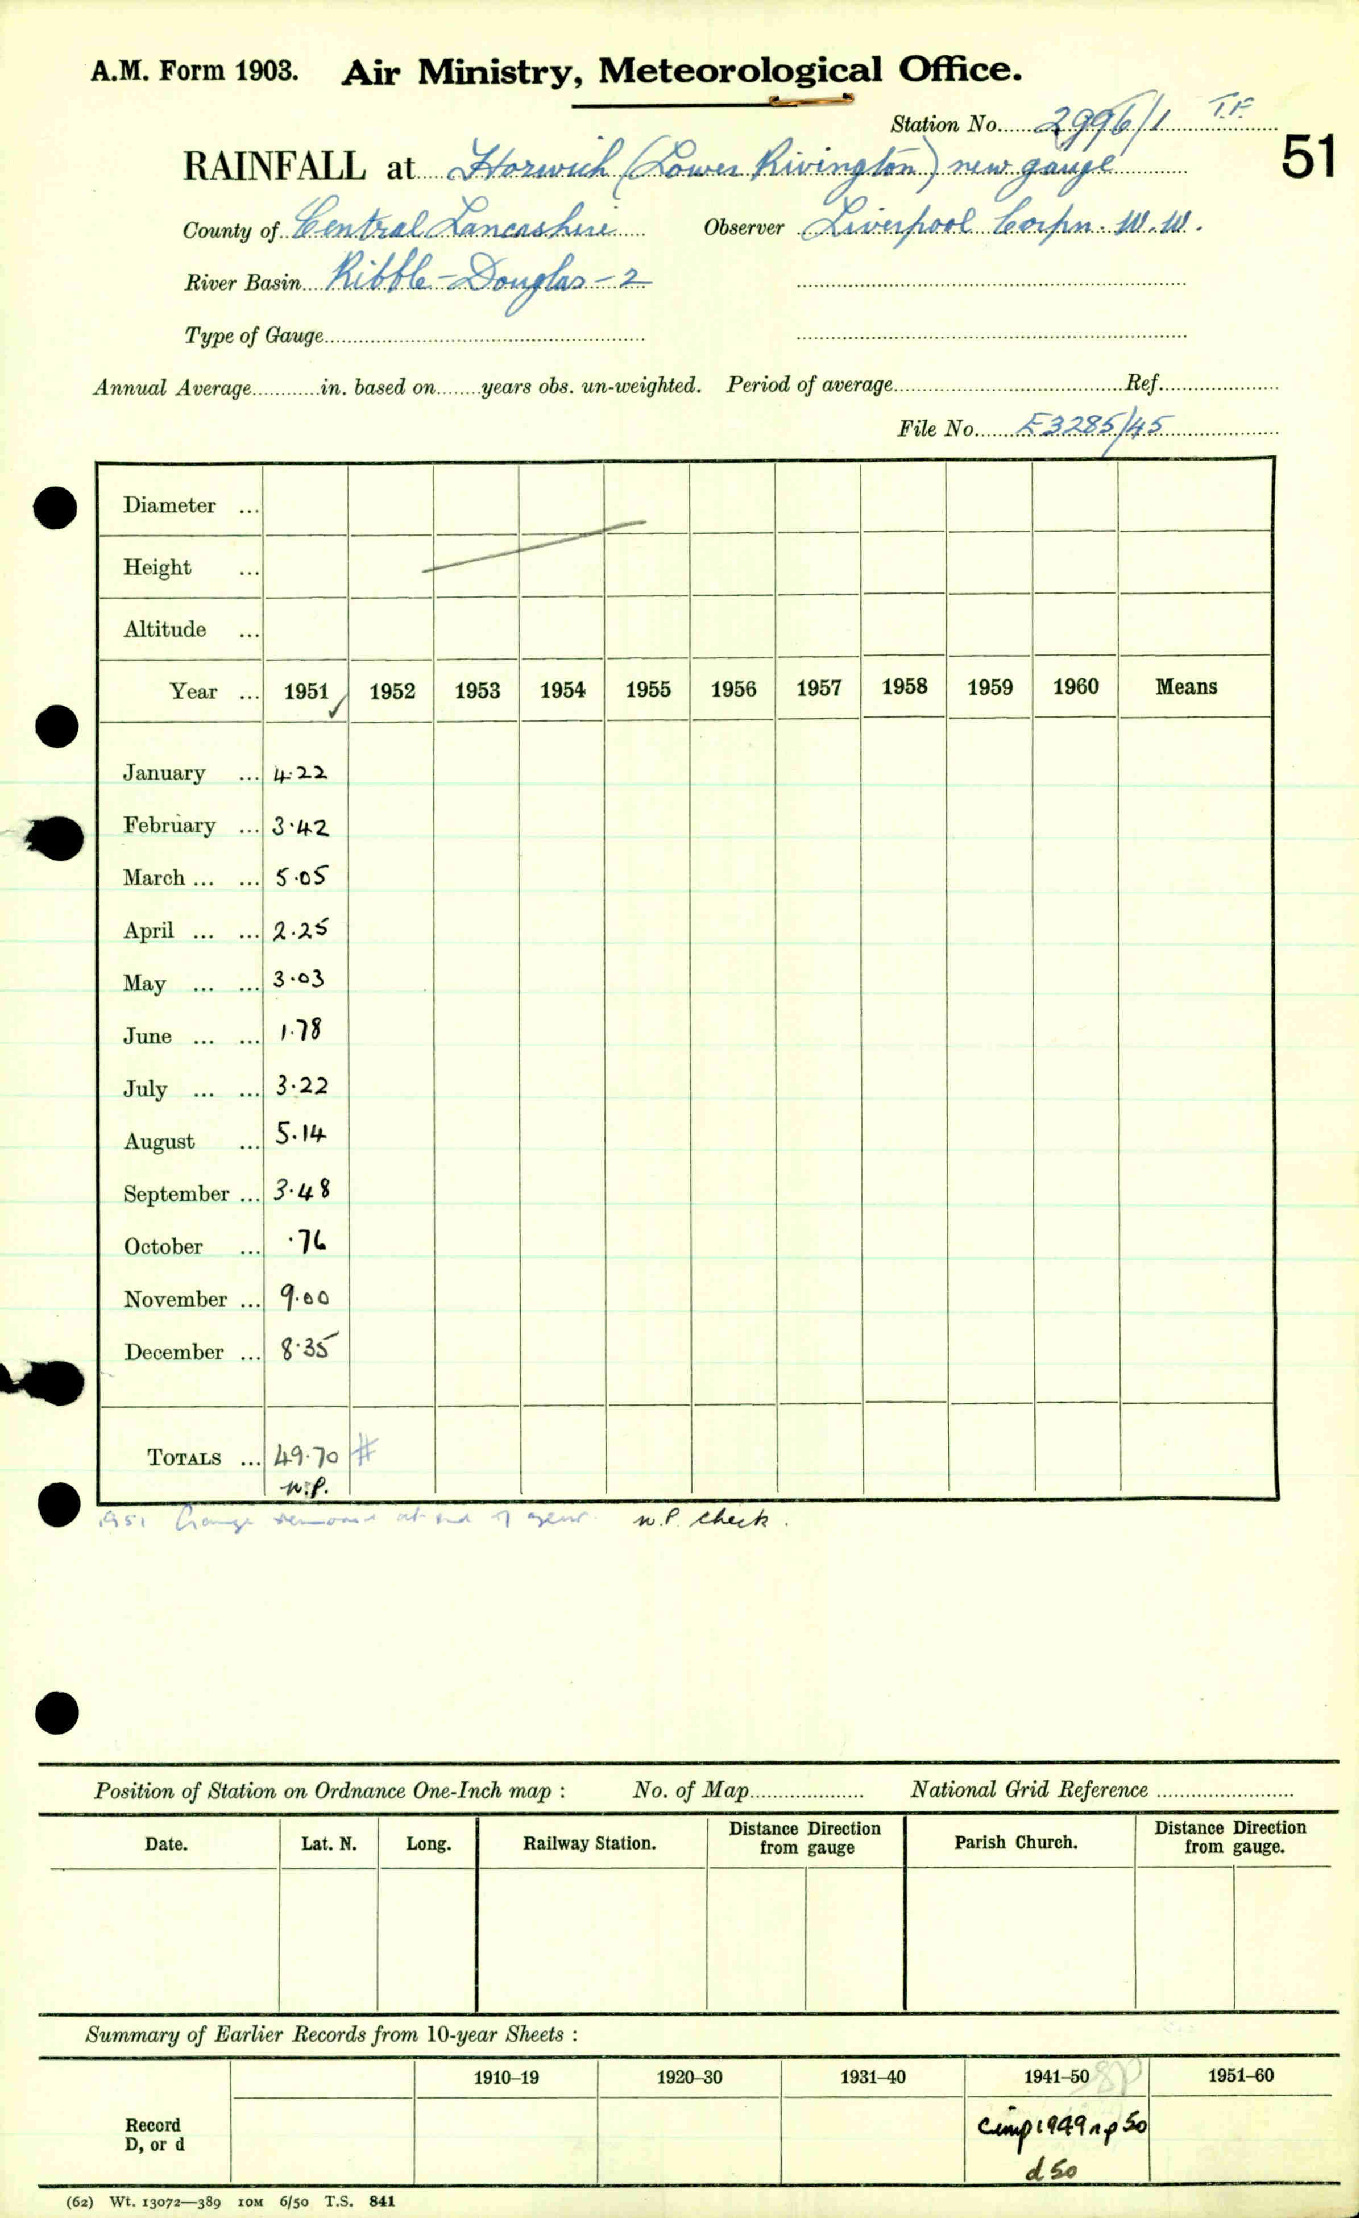 A.M. Form 1903. Air Ministry, Meteorological Office.
Station No. 2996/1 T.F.
51
RAINFALL at Horwich (Lower Rivington) new gauge
County of Central Lancashire Observer Liverpool Corpn. W.W.
River Basin Ribble-Douglas-2
Type of Gauge
Annual Average in. based on years obs. un-weighted. Period of average Ref.
File No. E3285/45
Diameter ...
Height ...
Altitude ...
Year ... 1951 ✓ 1952 1953 1954 1955 1956 1957 1958 1959 1960 Means
January ... 4.22
February ... 3.42
March ... ... 5.05
April ... ... 2.25
May ... ... 3.03
June ... ... 1.78
July ... ... 3.22
August ... 5.14
September ... 3.48
October ... .76
November ... 9.00
December ... 8.35
TOTALS ... 49.70 #
n.p.
1951 Gauge removed at end of year. n.p. check.
Position of Station on Ordnance One-Inch map : No. of Map National Grid Reference
Date. Lat. N. Long. Railway Station. Distance Direction from gauge Parish Church. Distance Direction from gauge.
Summary of Earlier Records from 10-year Sheets :
1910–19 1920–30 1931–40 1941–50 1951–60
Record
D, or d
1949 np 50
d 50
(62) Wt. 13072—389 10M 6/50 T.S. 841